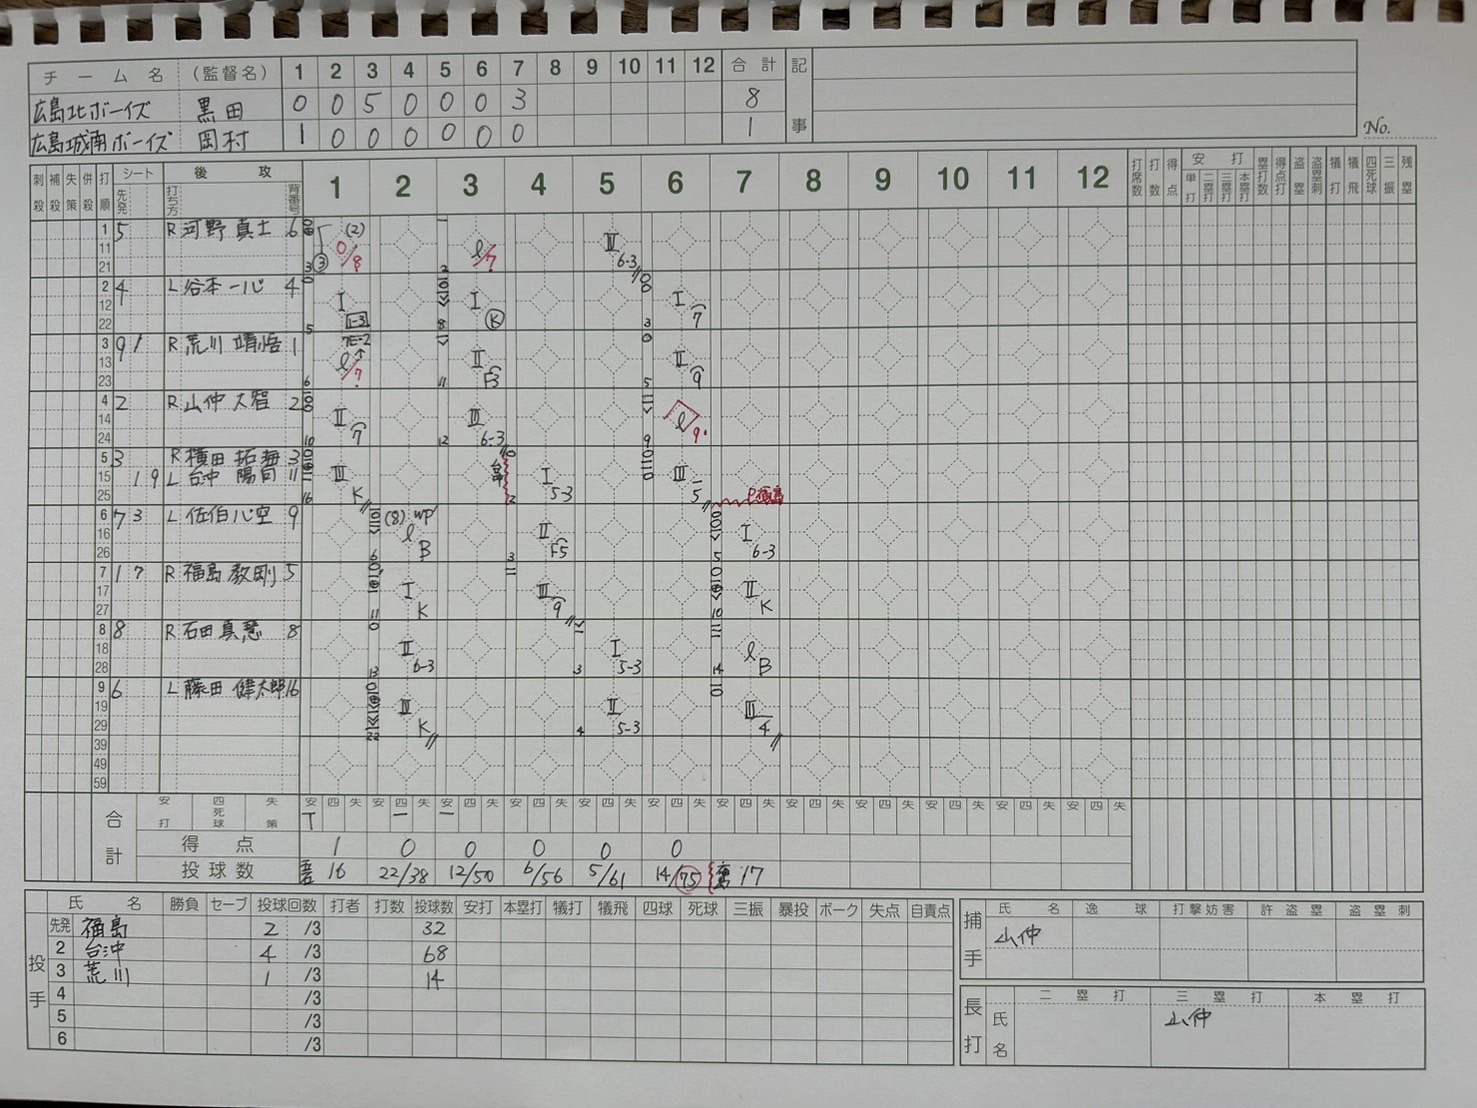 チーム名 (監督名) 1 2 3 4 5 6 7 8 9 10 11 12 合計 記事
広島北ボーイズ 黒田 0 0 5 0 0 0 3 8
広島城南ボーイズ 岡村 1 0 0 0 0 0 0 1
No.
刺殺 補殺 失策 併殺 打順 シート 先発 後攻 打ち方 背番号 1 2 3 4 5 6 7 8 9 10 11 12 打席数 打数 得点 安打 単打 二塁打 三塁打 本塁打 塁打数 得点打 盗塁 盗塁刺 犠打 犠飛 四死球 三振 残塁
1 11 21 5 R 河野 真士 6 (2) 0/8 l/7 III 6-3
2 12 22 4 L 谷本 一心 4 I 1-3 I K I 7
3 13 23 9 1 R 荒川 靖悟 1 7E-2 l/7 II F3 II 9
4 14 24 2 R 山仲 大智 2 II 7 III 6-3 l 9
5 15 25 3 R 横田 拓海 3
1 9 L 台沖 陽向 11 III K I 5-3 III 5
P福島
6 16 26 7 3 L 佐伯 心空 9 (8) WP l B II F5 I 6-3
7 17 27 1 7 R 福島 敦剛 5 I K III 9 II K
8 18 28 8 R 石田 真慧 8 II 6-3 I 5-3 l B
9 19 29 6 L 藤田 健太郎 16 III K II 5-3 III 4
39 49 59
合計 安打 四死球 失策 安 四 失 安 四 失 安 四 失 安 四 失 安 四 失 安 四 失 安 四 失 安 四 失 安 四 失 安 四 失 安 四 失 安 四 失
得点 1 0 0 0 0 0
投球数 16 22/38 12/50 6/56 5/61 14/75 17
氏名 勝負 セーブ 投球回数 打者 打数 投球数 安打 本塁打 犠打 犠飛 四球 死球 三振 暴投 ボーク 失点 自責点
投手
先発 福島 2 /3 32
2 台沖 4 /3 68
3 荒川 1 /3 14
4 /3
5 /3
6 /3
捕手 氏名 逸球 打撃妨害 許盗塁 盗塁刺
山仲
長打 氏名 二塁打 三塁打 本塁打
山仲